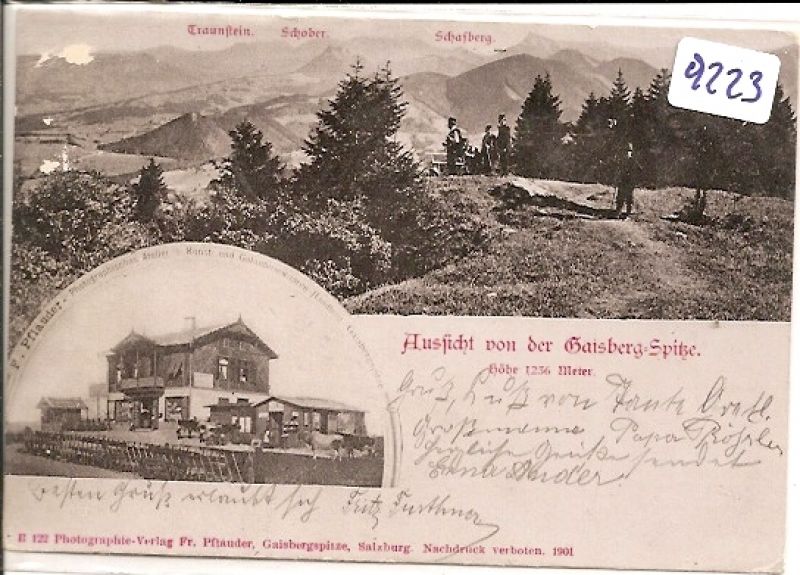 Traunstein. Schober. Schafberg.
9223
F. Pflauder - Photographisches Atelier Kunst- und Galanteriewaaren
Aussicht von der Gaisberg-Spitze.
Höhe 1256 Meter.
Gruß, Kuß von Tante Gretl.
Großmama Papa
herzliche Grüße sendet
Besten Gruß erlaubt sich Fritz
E 122 Photographie-Verlag Fr. Pflauder, Gaisbergspitze, Salzburg. Nachdruck verboten. 1901